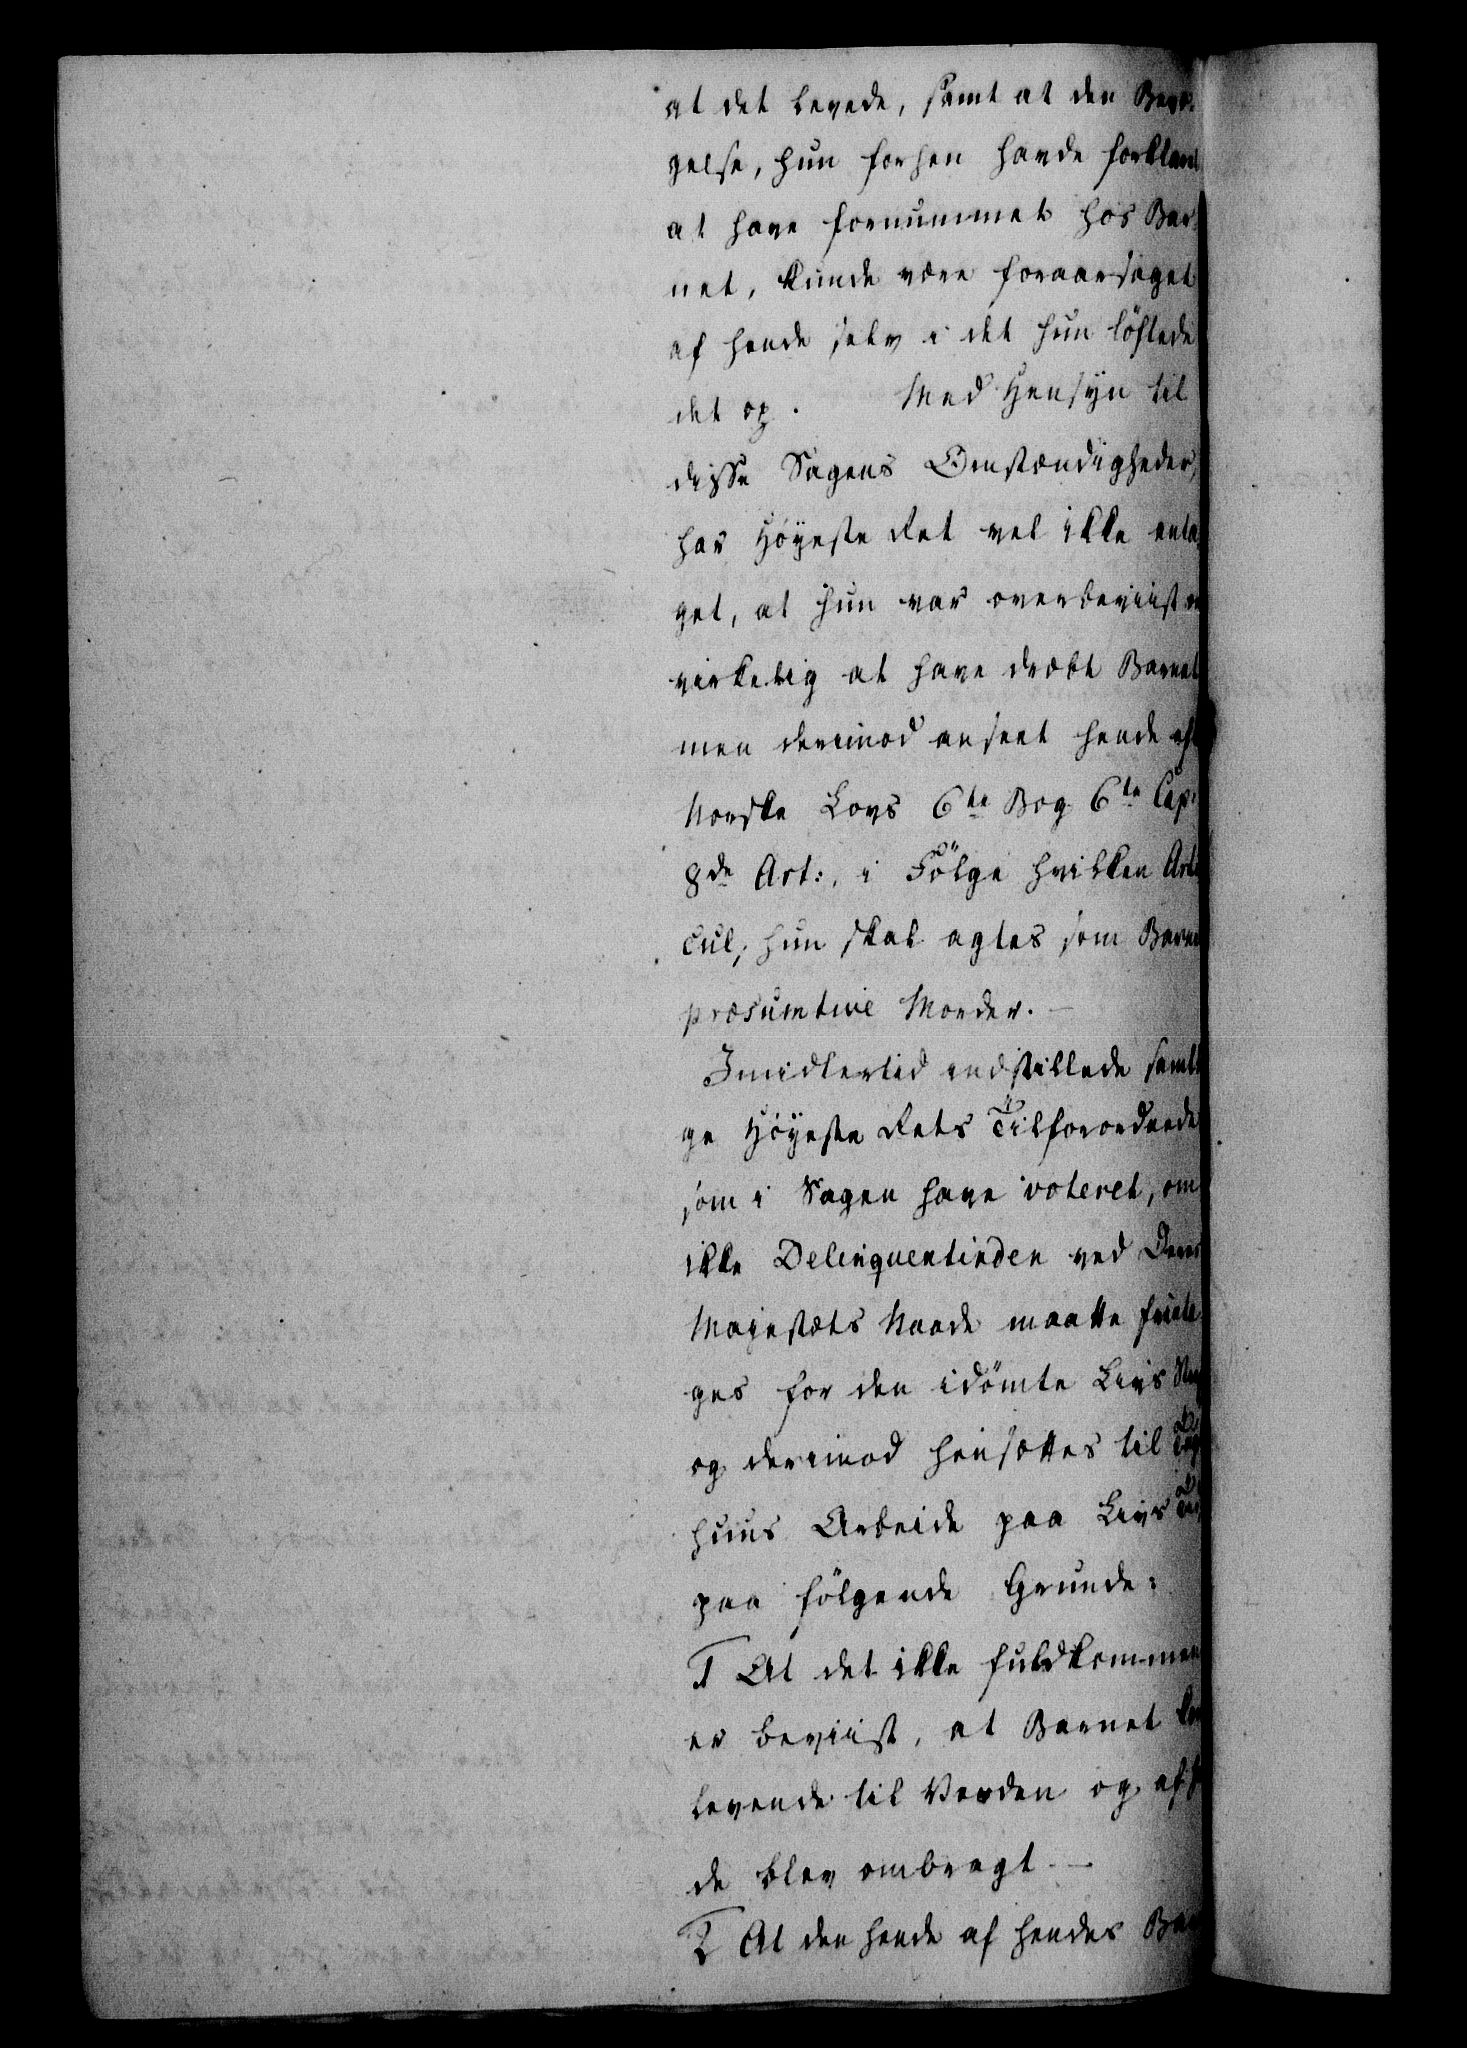 at det levede, samt at den Bevæ-
gelse, hun forhen havde forklaret
at have fornummet hos Bar-
net, kunde være foraarsaget
af hende selv i det hun löftede
det op. Med Hensyn til
disse Sagens Omstændigheder,
har Höyeste Ret vel ikke anta-
get, at hun var overbeviist
virkelig at have dræbt Barnet
men derimod anseet hende
Norske Lovs 6te Bog 6te Cap:
8de Art:, i Fölge hvilken Arti
cul, hun skal agtes som Barne
præsumtive Morder. —
Imidlertid indstillede samt
ge Höyeste Rets Tilforordnede
som i Sagen have voteret, om
ikke Delinquentinden ved Deres
Majestæts Naade maatte friета
ges for den idömte Livs
og derimod hensættes til
huus Arbeide paa Livs Tid
paa fölgende Grunde:
1 At det ikke fuldkommen
er beviist, at Barnet
levende til Verden og
de blev ombragt —
2 At den hende af hendes